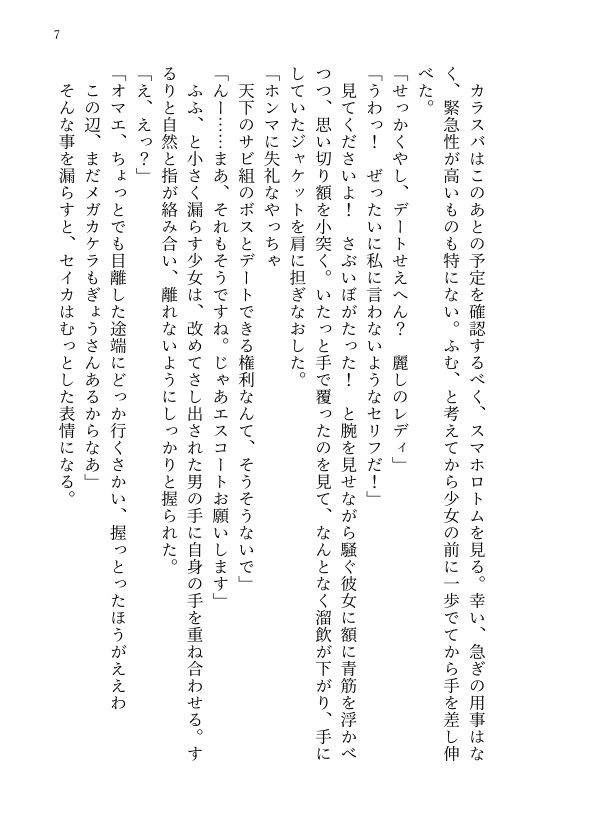 7
カラスバはこのあとの予定を確認するべく、スマホロトムを見る。幸い、急ぎの用事はな
く、緊急性が高いものも特にない。ふむ、と考えてから少女の前に一歩でてから手を差し伸
べた。
「せっかくやし、デートせえへん？　麗しのレディ」
「うわっ！　ぜったいに私に言わないようなセリフだ！」
見てくださいよ！　さぶいぼがたった！　と腕を見せながら騒ぐ彼女に額に青筋を浮かべ
つつ、思い切り額を小突く。いたっと手で覆ったのを見て、なんとなく溜飲が下がり、手に
していたジャケットを肩に担ぎなおした。
「ホンマに失礼なやっちゃ
天下のサビ組のボスとデートできる権利なんて、そうそうないで」
「んー……まあ、それもそうですね。じゃあエスコートお願いします」
ふふ、と小さく漏らす少女は、改めてさし出された男の手に自身の手を重ね合わせる。す
るりと自然と指が絡み合い、離れないようにしっかりと握られた。
「え、えっ？」
「オマエ、ちょっとでも目離した途端にどっか行くさかい、握っとったほうがええわ
この辺、まだメガカケラもぎょうさんあるからなあ」
そんな事を漏らすと、セイカはむっとした表情になる。